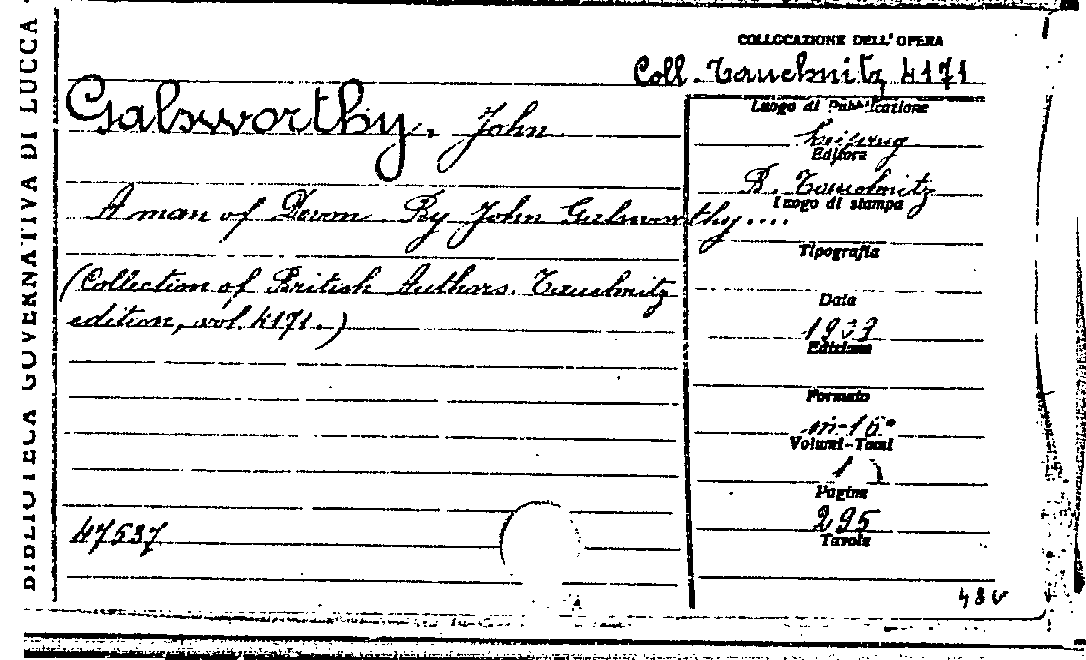 BIBLIOTECA GOVERNATIVA DI LUCCA
COLLOCAZIONE DELL'OPERA
Coll. Tauchnitz 4171
Galsworthy, John
A man of Devon. By John Galsworthy....
(Collection of British Authors. Tauchnitz
edition, vol. 4171.)
47537
Luogo di Pubblicazione
Leipzug
Editore
B. Tauchnitz
Luogo di stampa
Tipografia
Data
1909
Edizione
Formato
in-16°
Volumi-Tomi
1
Pagine
295
Tavole